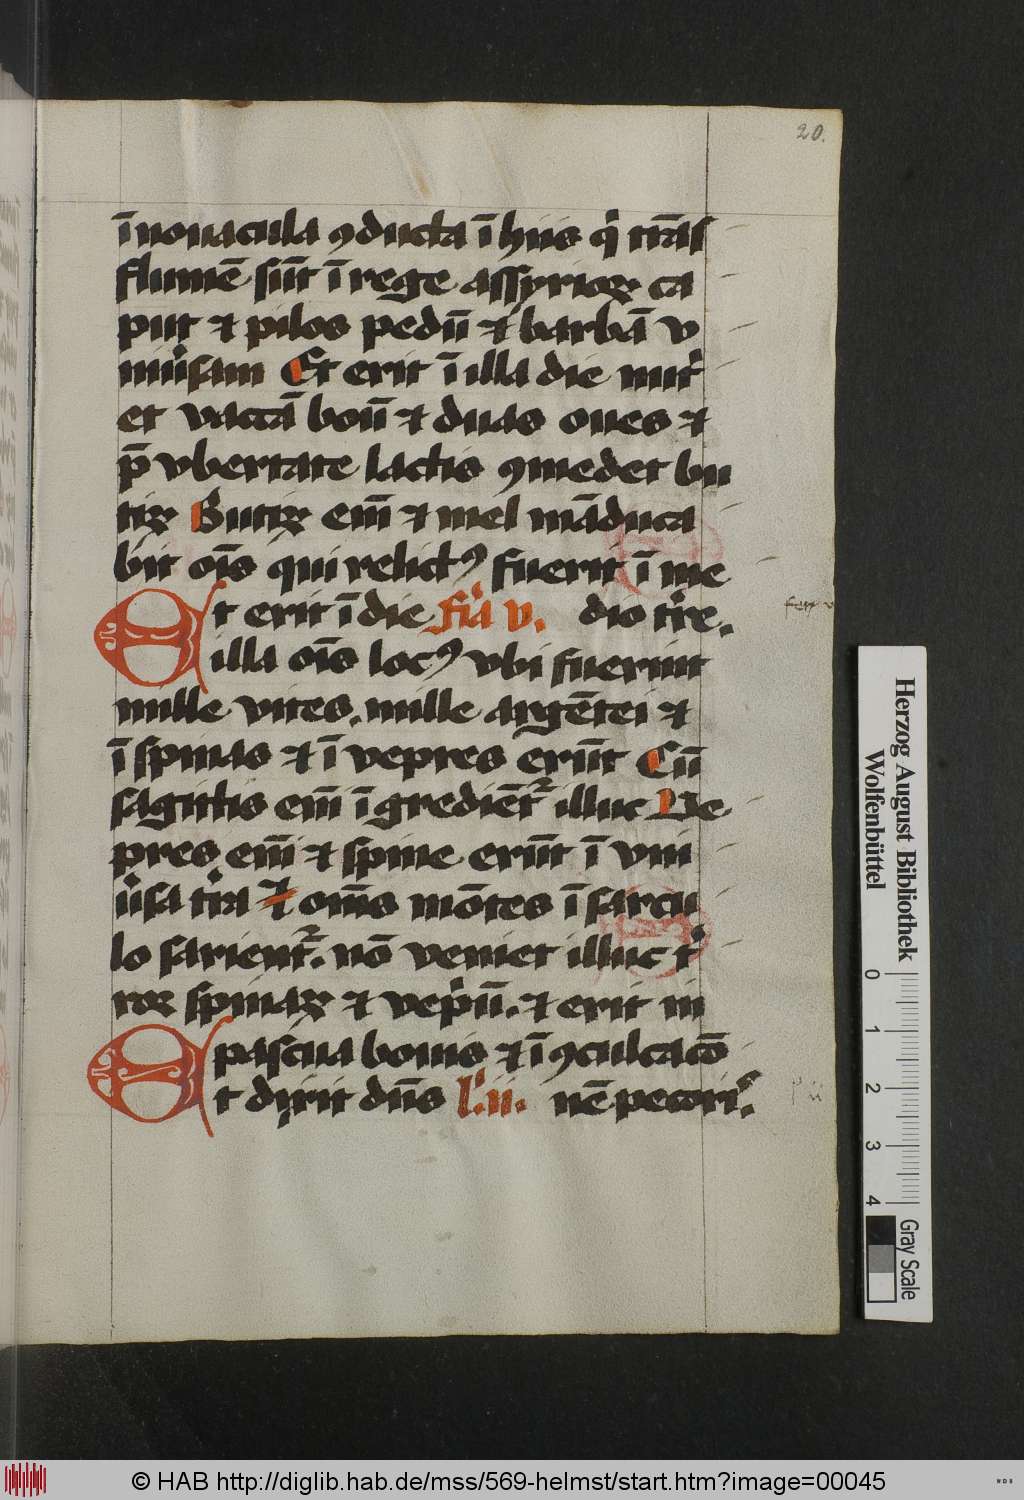 20.
ī nouacula ꝯducta ī hiis q̇ trās
flumē sūt ī rege assyrioꝝ ca
put ⁊ pilos pedū ⁊ barbā v
niūsam Et erit ī illa die nutͥ
et vaccā boū ⁊ duas oues ⁊
p̄ vbertate lactis ꝯmedet bu
tiꝝ Butiꝝ em̄ ⁊ mel māduca
bit oīs qui relictꝰ fuerit ī me
Et erit ī die fia v. dio tre.
illa oīs locꝰ vbi fuerint
mille vites. mille argētei ⁊
ī spinas ⁊ ī vepres erūt Cū
sagittis em̄ īgrediēt᷑ illuc Ve
pres em̄ ⁊ spine erūt ī vni
ūsa tra ⁊ om̄s mōtes ī sarcu
lo sarient᷑. nō veniet illuc t
ror spinaꝝ ⁊ vepū. ⁊ erit in
pascua bouis ⁊ ī ꝯculcacō
Et dixit dūs l. ii. nē pecori.
Herzog August Bibliothek
Wolfenbüttel
0 1 2 3 4
Gray Scale
© HAB http://diglib.hab.de/mss/569-helmst/start.htm?image=00045